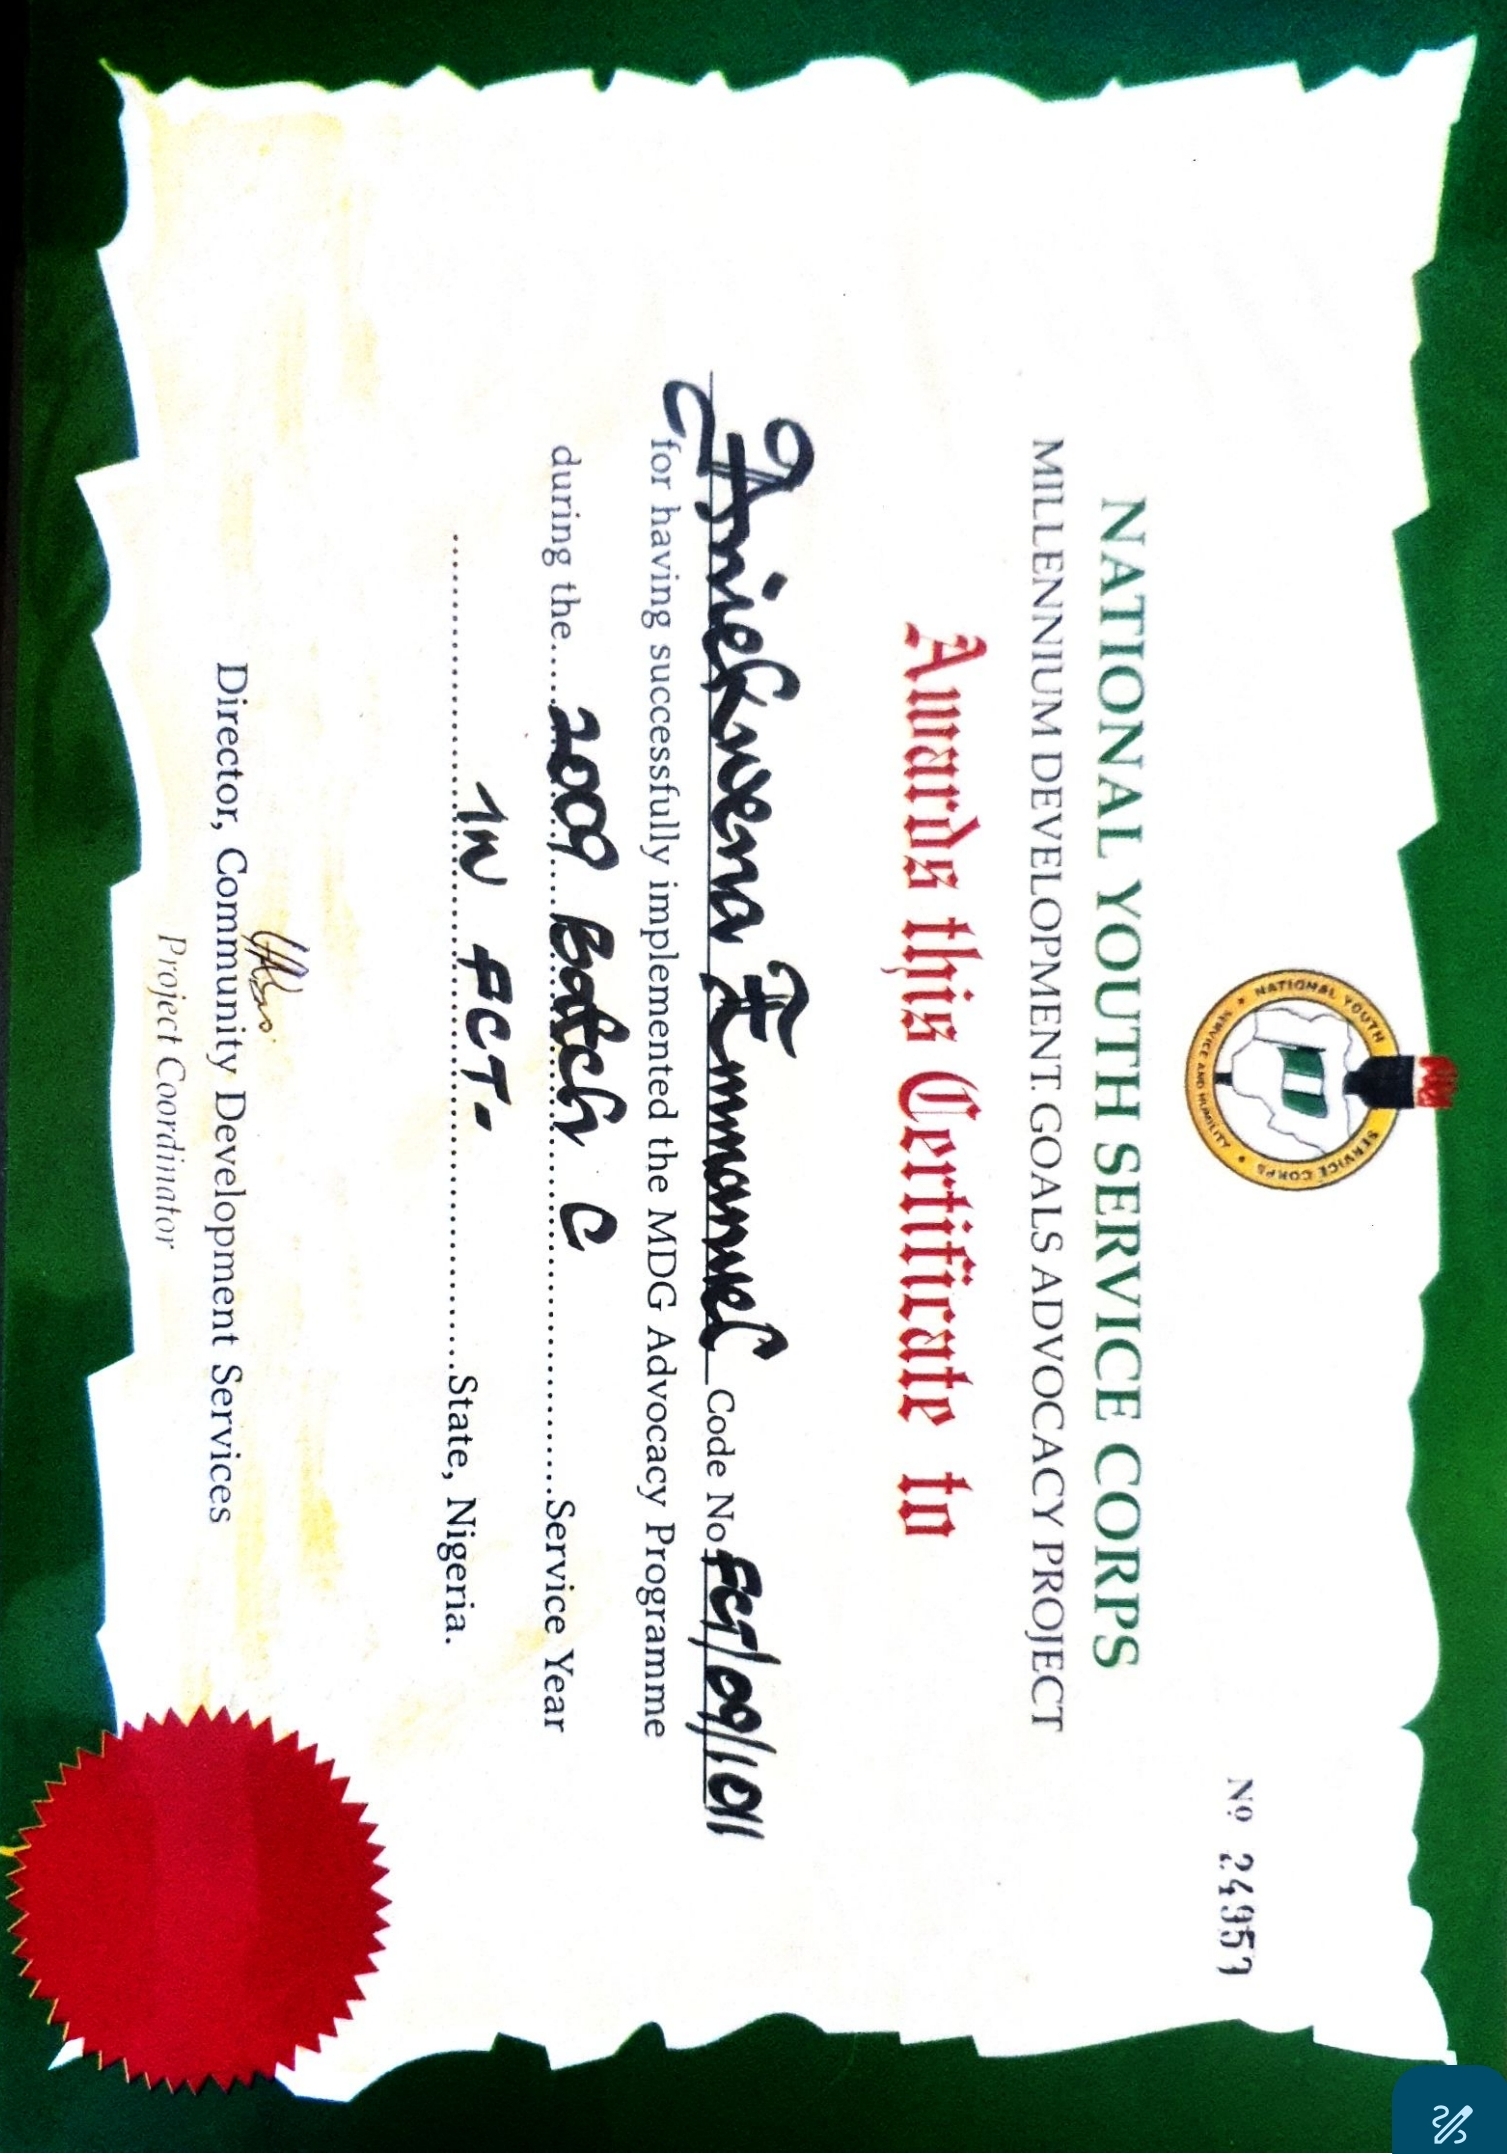 NATIONAL YOUTH SERVICE CORPS
SERVICE AND HUMILITY
Nº 24959
NATIONAL YOUTH SERVICE CORPS
MILLENNIUM DEVELOPMENT. GOALS ADVOCACY PROJECT
Awards this Certificate to
Aniekwena Emmanuel Code No FCT/09/1011
for having successfully implemented the MDG Advocacy Programme
during the.....2009 Batch C.....Service Year
IN FCT-.....State, Nigeria.
Director, Community Development Services
Project Coordinator